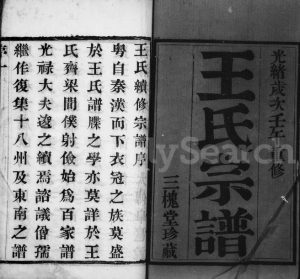 光緒歲次壬午重修
王氏宗譜
三槐堂珍藏
王氏續修宗譜序
粵自秦漢而下衣冠之族莫盛
於王氏譜牒之學亦莫詳於王
氏齊梁間僕射儉始為百家譜
光祿大夫逡之續焉諮議僧孺
繼作復集十八州及東南之譜
序一
lySearch